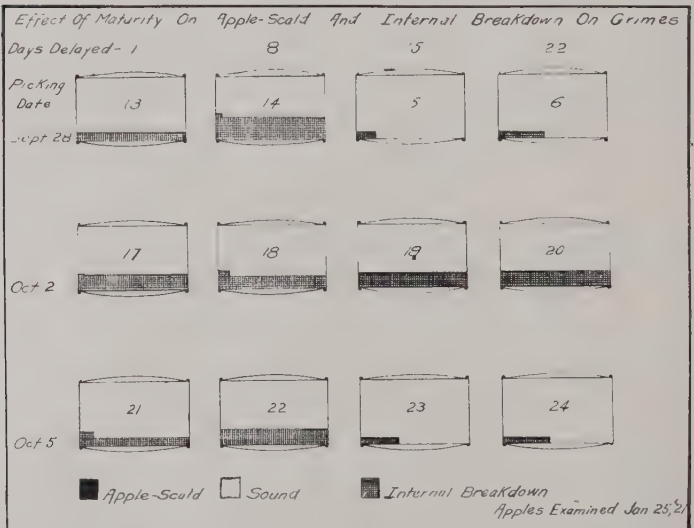 Effect Of Maturity On Apple-Scald And Internal Breakdown On Grimes
Days Delayed - 1 8 15 22
Picking
Date 13 14 5 6
Sept 28
17 18 19 20
Oct 2
21 22 23 24
Oct 5
Apple-Scald Sound Internal Breakdown
Apples Examined Jan 25, 21